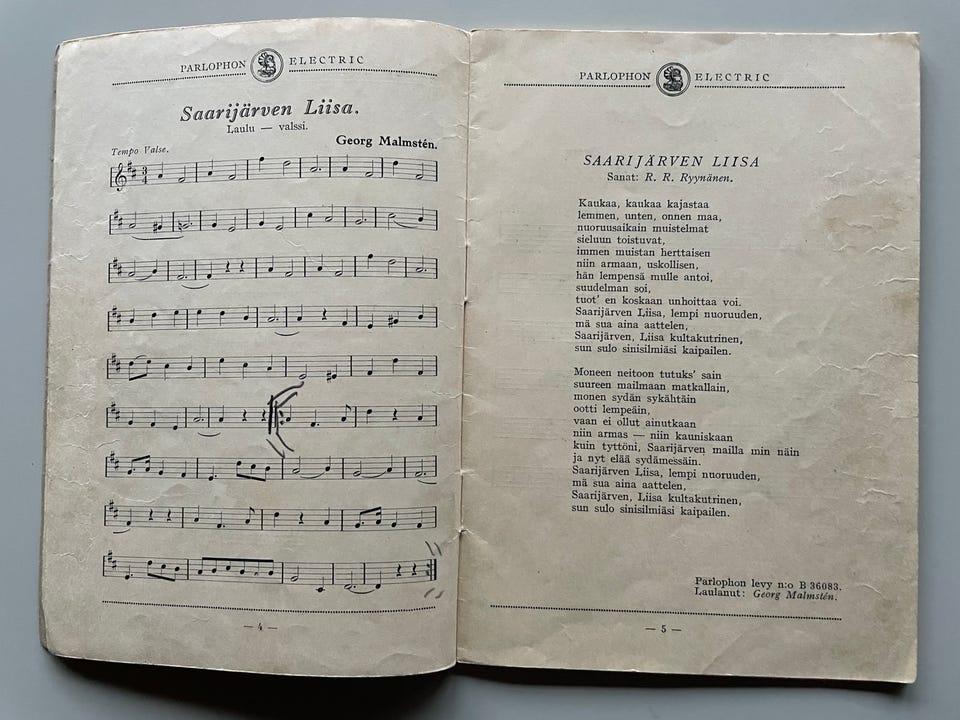 PARLOPHON ELECTRIC
Saarijärven Liisa.
Laulu — valssi.
Georg Malmstén.
Tempo Valse.
3/4
— 4 —
PARLOPHON ELECTRIC
SAARIJÄRVEN LIISA
Sanat: R. R. Ryynänen.
Kaukaa, kaukaa kajastaa
lemmen, unten, onnen maa,
nuoruusaikain muistelmat
sieluun toistuvat,
immen muistan herttaisen
niin armaan, uskollisen,
hän lempensä mulle antoi,
suudelman soi,
tuot' en koskaan unhoittaa voi.
Saarijärven Liisa, lempi nuoruuden,
mä sua aina aattelen,
Saarijärven, Liisa kultakutrinen,
sun sulo sinisilmiäsi kaipailen.
Moneen neitoon tutuks' sain
suureen mailmaan matkallain,
monen sydän sykähtäin
ootti lempeäin,
vaan ei ollut ainutkaan
niin armas — niin kauniskaan
kuin tyttöni, Saarijärven mailla min näin
ja nyt elää sydämessäin.
Saarijärven Liisa, lempi nuoruuden,
mä sua aina aattelen,
Saarijärven, Liisa kultakutrinen,
sun sulo sinisilmiäsi kaipailen.
Parlophon levy n:o B 36083.
Laulanut: Georg Malmstén.
— 5 —